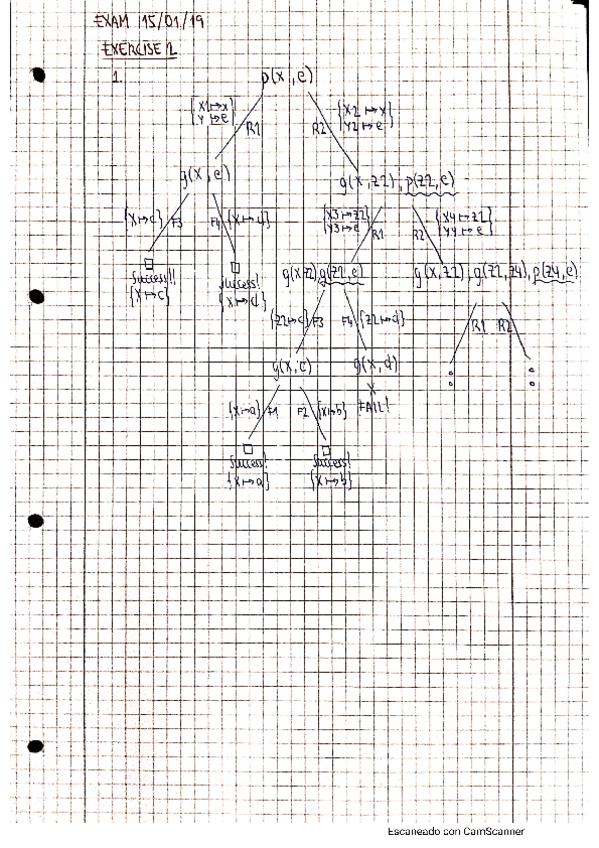 EXAM 15/01/19
EXERCISE 2
1.
p(x,e)
{X1↦x
Y↦e}
R1
R2
{X2↦x
Y2↦e}
g(x,e)
g(x,z2), p(z2,e)
{X↦c} F3
F4 {X↦d}
{X3↦z2
Y3↦e}
R1
R2
{X4↦z2
Y4↦e}
□
Success!!
{X↦c}
□
Success!
{X↦d}
g(x,z2) g(z2,e)
g(x,z2), g(z2,z4), p(z4,e)
{z2↦c} F3
F4 {z2↦d}
R1 R2
g(x,c)
g(x,d)
X
FAIL!
{X↦a} F1
F2 {X↦b}
□
Success!
{X↦a}
□
Success!
{X↦b}
Escaneado con CamScanner